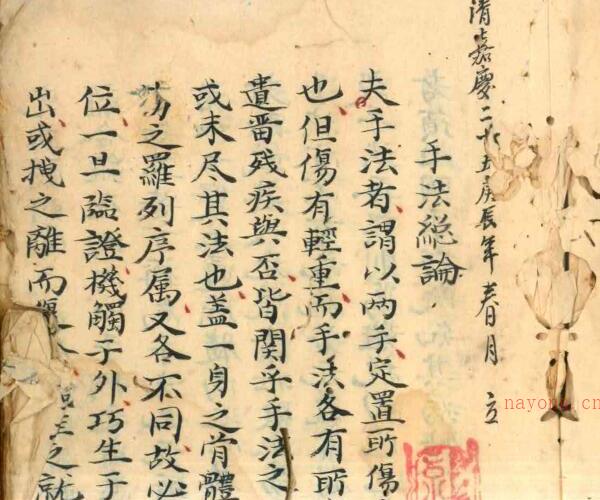 清嘉慶二十五庚辰年春月 立
手法総論
夫手法者謂以两手定置所傷
也但傷有輕重而手法各有所
遺畨残疾與否皆関乎手法之
或未尽其法也盖一身之骨體
之羅列序属又各不同故必
位一旦臨證機觸于外巧生于
出或拽之離而 之就
nayong.cn